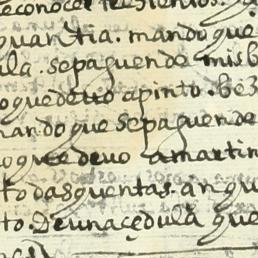 econocer
quantia. mando que
ula. sepaguende misb
oquedeuo apinto. bez
mando que sepaguende
oque deuo amartin
todasquentas. an qu
to. Deunaçedula que